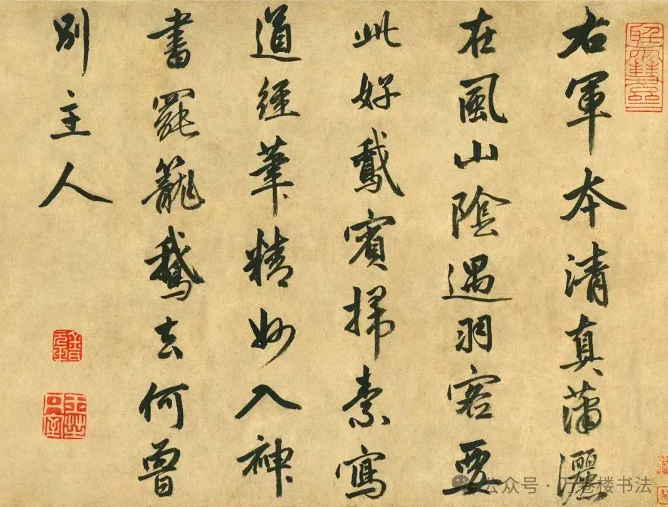 右軍本清真瀟灑
在風山陰遇羽客要
此好鵞賓掃素寫
道經筆精妙入神
書罷籠鵞去何曾
別主人
公众号 · 万卷楼书法